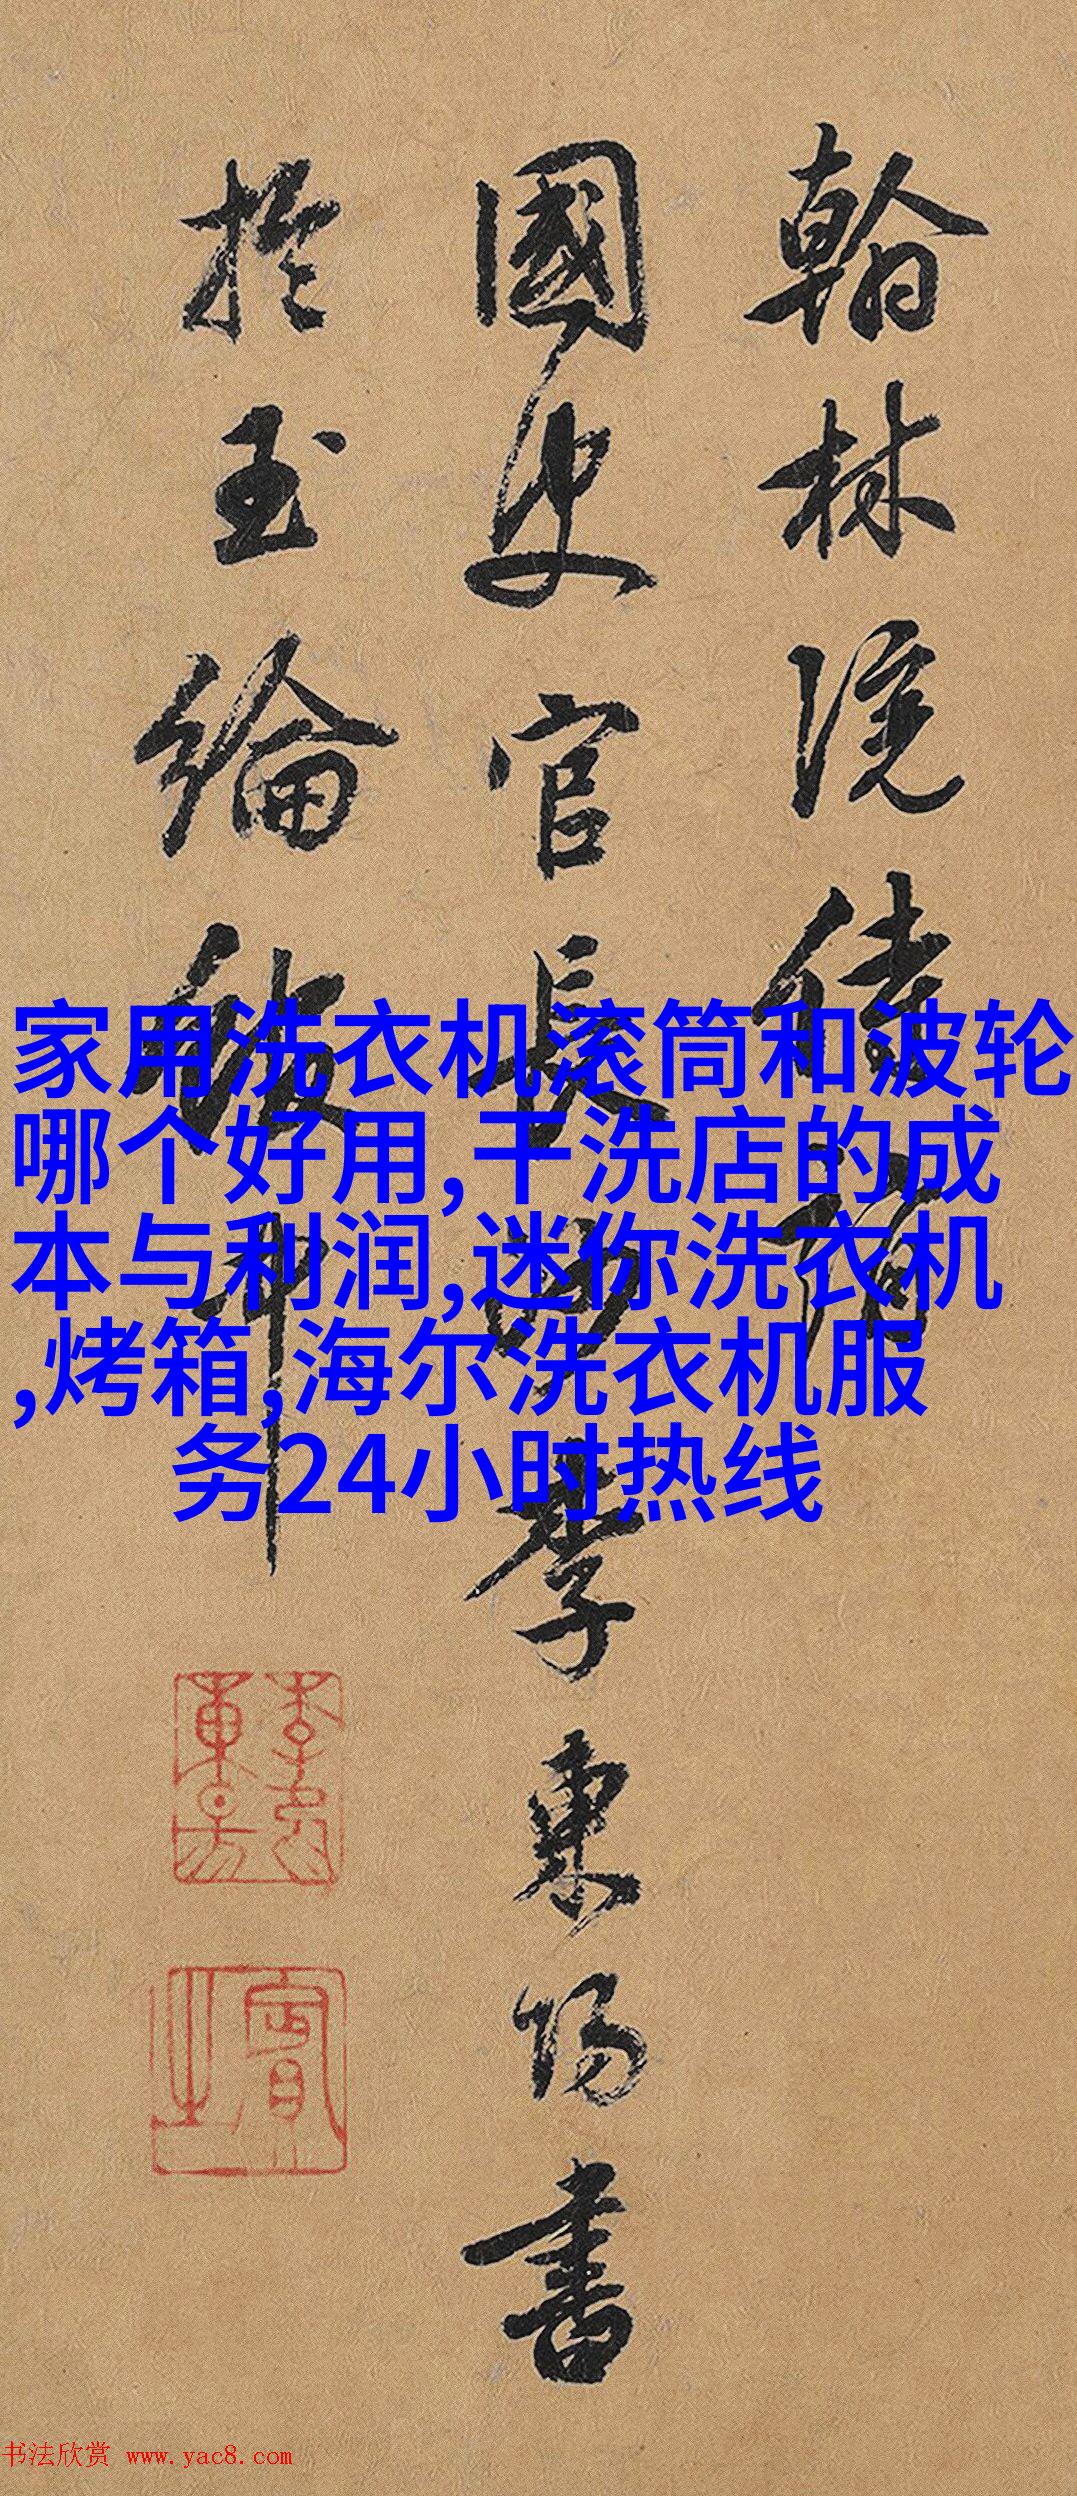 翰林院侍讀
國史官長沙李東陽書
於玉綸
家用洗衣机滚筒和波轮
哪个好用,干洗店的成
本与利润,迷你洗衣机
,烤箱,海尔洗衣机服
务24小时热线
书法欣赏 www.yac8.com